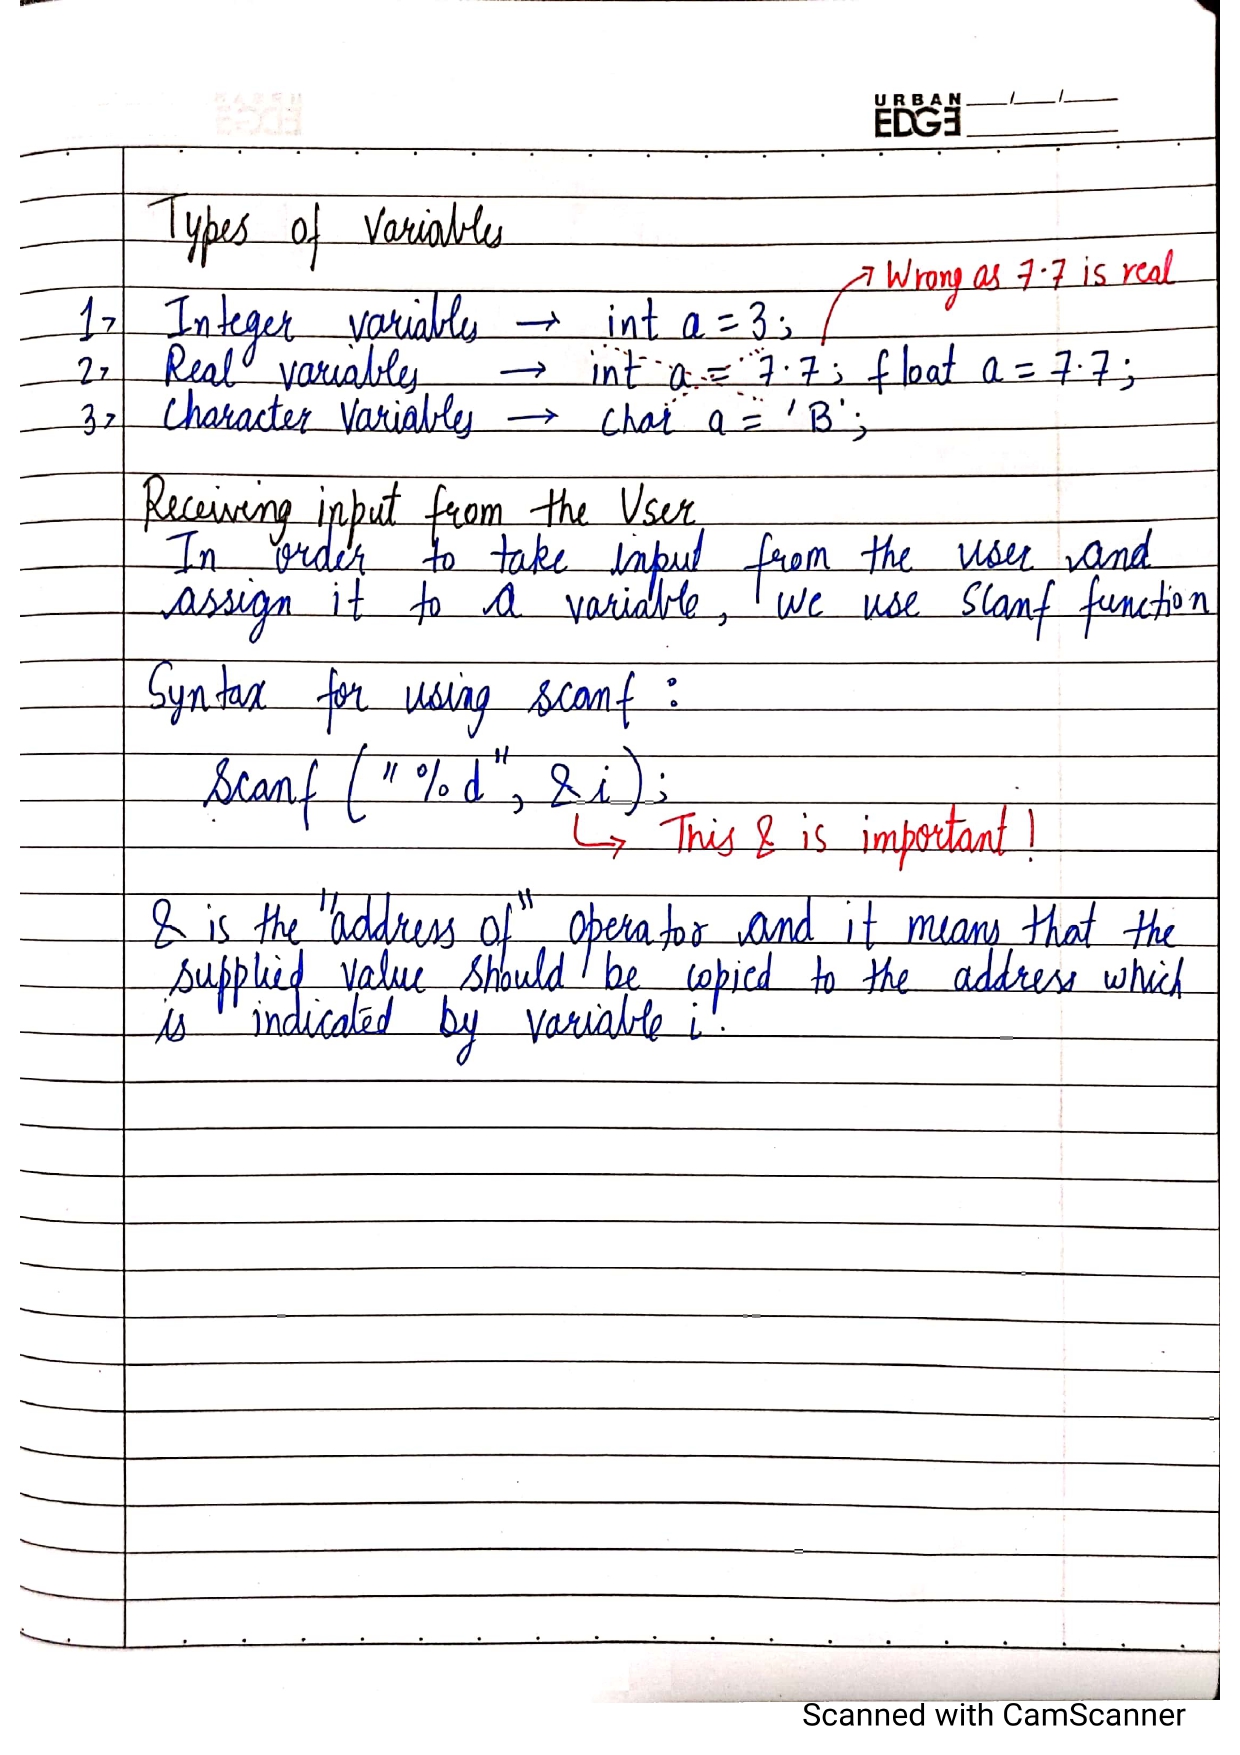 URBAN
EDGE
Types of Variables
Wrong as 7.7 is real
1> Integer variables → int a = 3;
2> Real variables → int a = 7.7; float a = 7.7;
3> Character Variables → char a = 'B';
Receiving input from the User
In order to take input from the user and
assign it to a variable, we use scanf function
Syntax for using scanf :
scanf ("%d", &i);
↳ This & is important!
& is the "address of" operator and it means that the
supplied value should be copied to the address which
is indicated by variable i.
Scanned with CamScanner